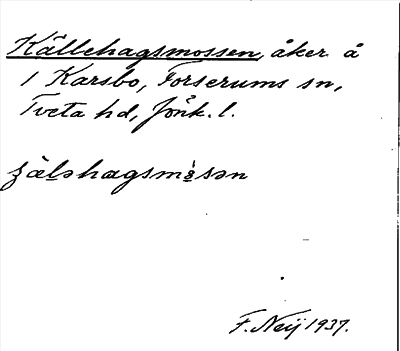 Källehagsmossen, åker å
1 Karsbo, Forserums sn,
Tveta hd, Jönk. l.
ʂäləhagsmòsən
F. Neij 1937.